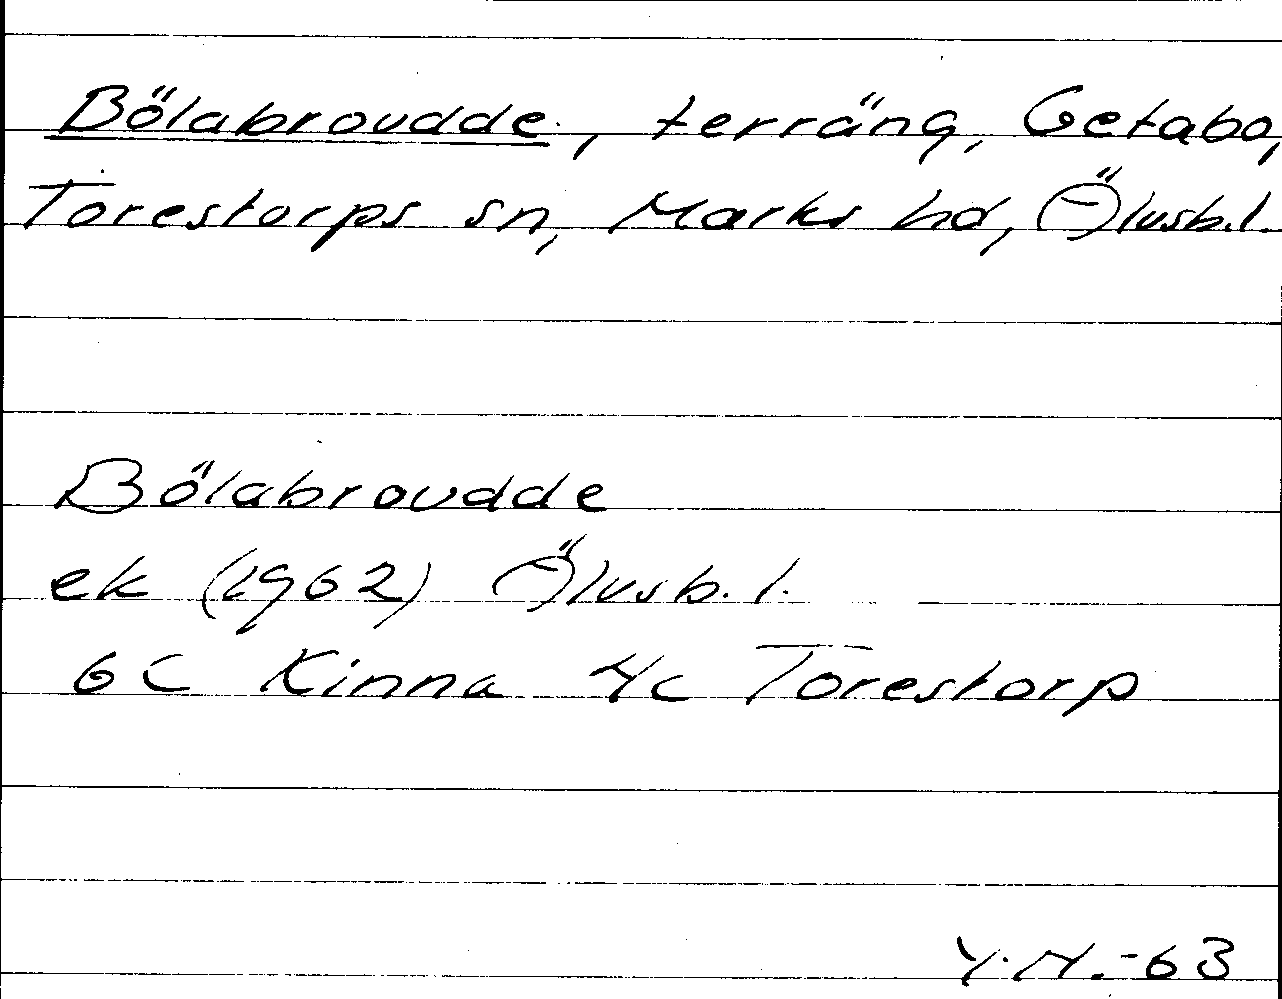 Bölabroudde, terräng, Getabo,
Torestorps sn, Marks hd, Älvsb.l.
Bölabroudde
ek (1962) Älvsb.l.
6C Kinna 4c Torestorp
Y.N.-63